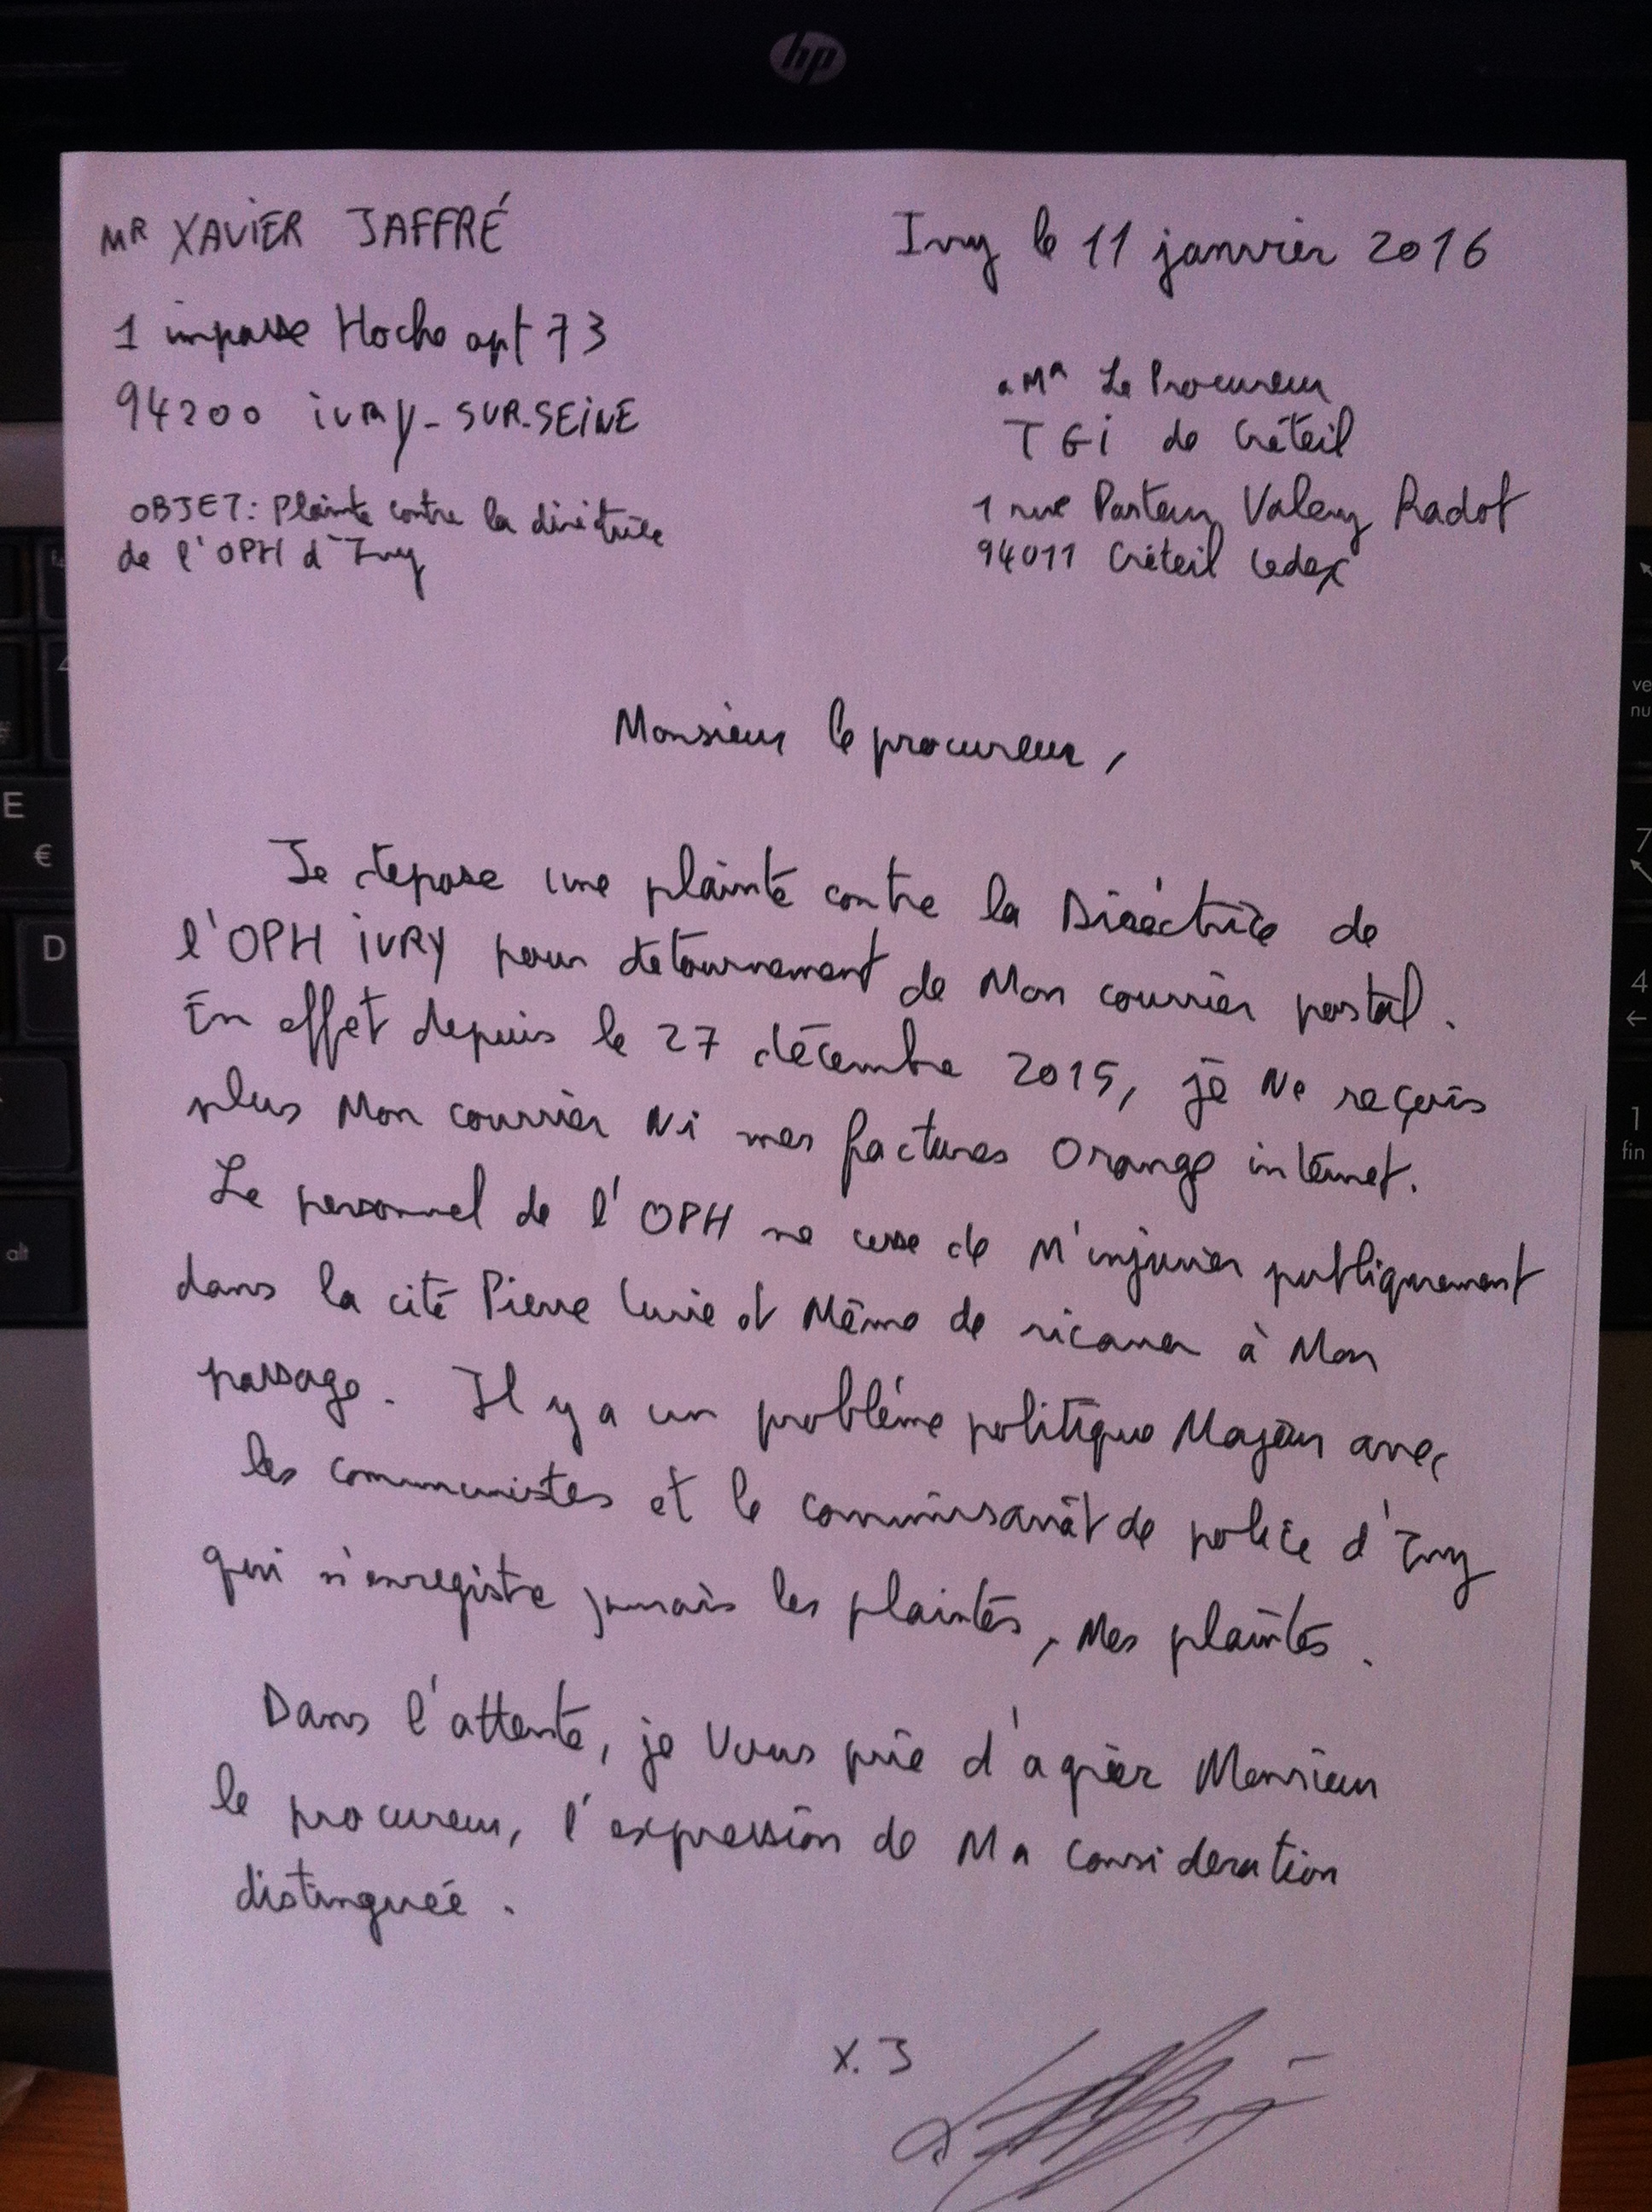 hp
MR XAVIER JAFFRÉ
Ivry le 11 janvier 2016
1 impasse Hoche apt 73
94200 IVRY-SUR-SEINE
a MR Le Procureur
TGI de Créteil
OBJET: Plainte contre la diréctrice
de l'OPH d'Ivry
1 rue Pasteur Valery Radot
94011 Créteil Cedex
Monsieur le procureur,
Je depose une plainte contre la Diréctrice de
l'OPH IVRY pour détournement de Mon courrier postal.
En effet depuis le 27 décembre 2015, je Ne reçois
plus Mon courrier Ni mes factures Orange internet.
Le personnel de l'OPH ne cesse de M'injurier publiquement
dans la cité Pierre Curie et Même de ricaner à Mon
passage. Il y a un problème politique Majeur avec
les communistes et le commissariat de police d'Ivry
qui n'enregistre jamais les plaintes, Mes plaintes.
Dans l'attente, je Vous prie d'agréer Monsieur
le procureur, l'expression de Ma consideration
distinguée.
X.J
E
€
D
alt
ve
nu
7
4
1
fin